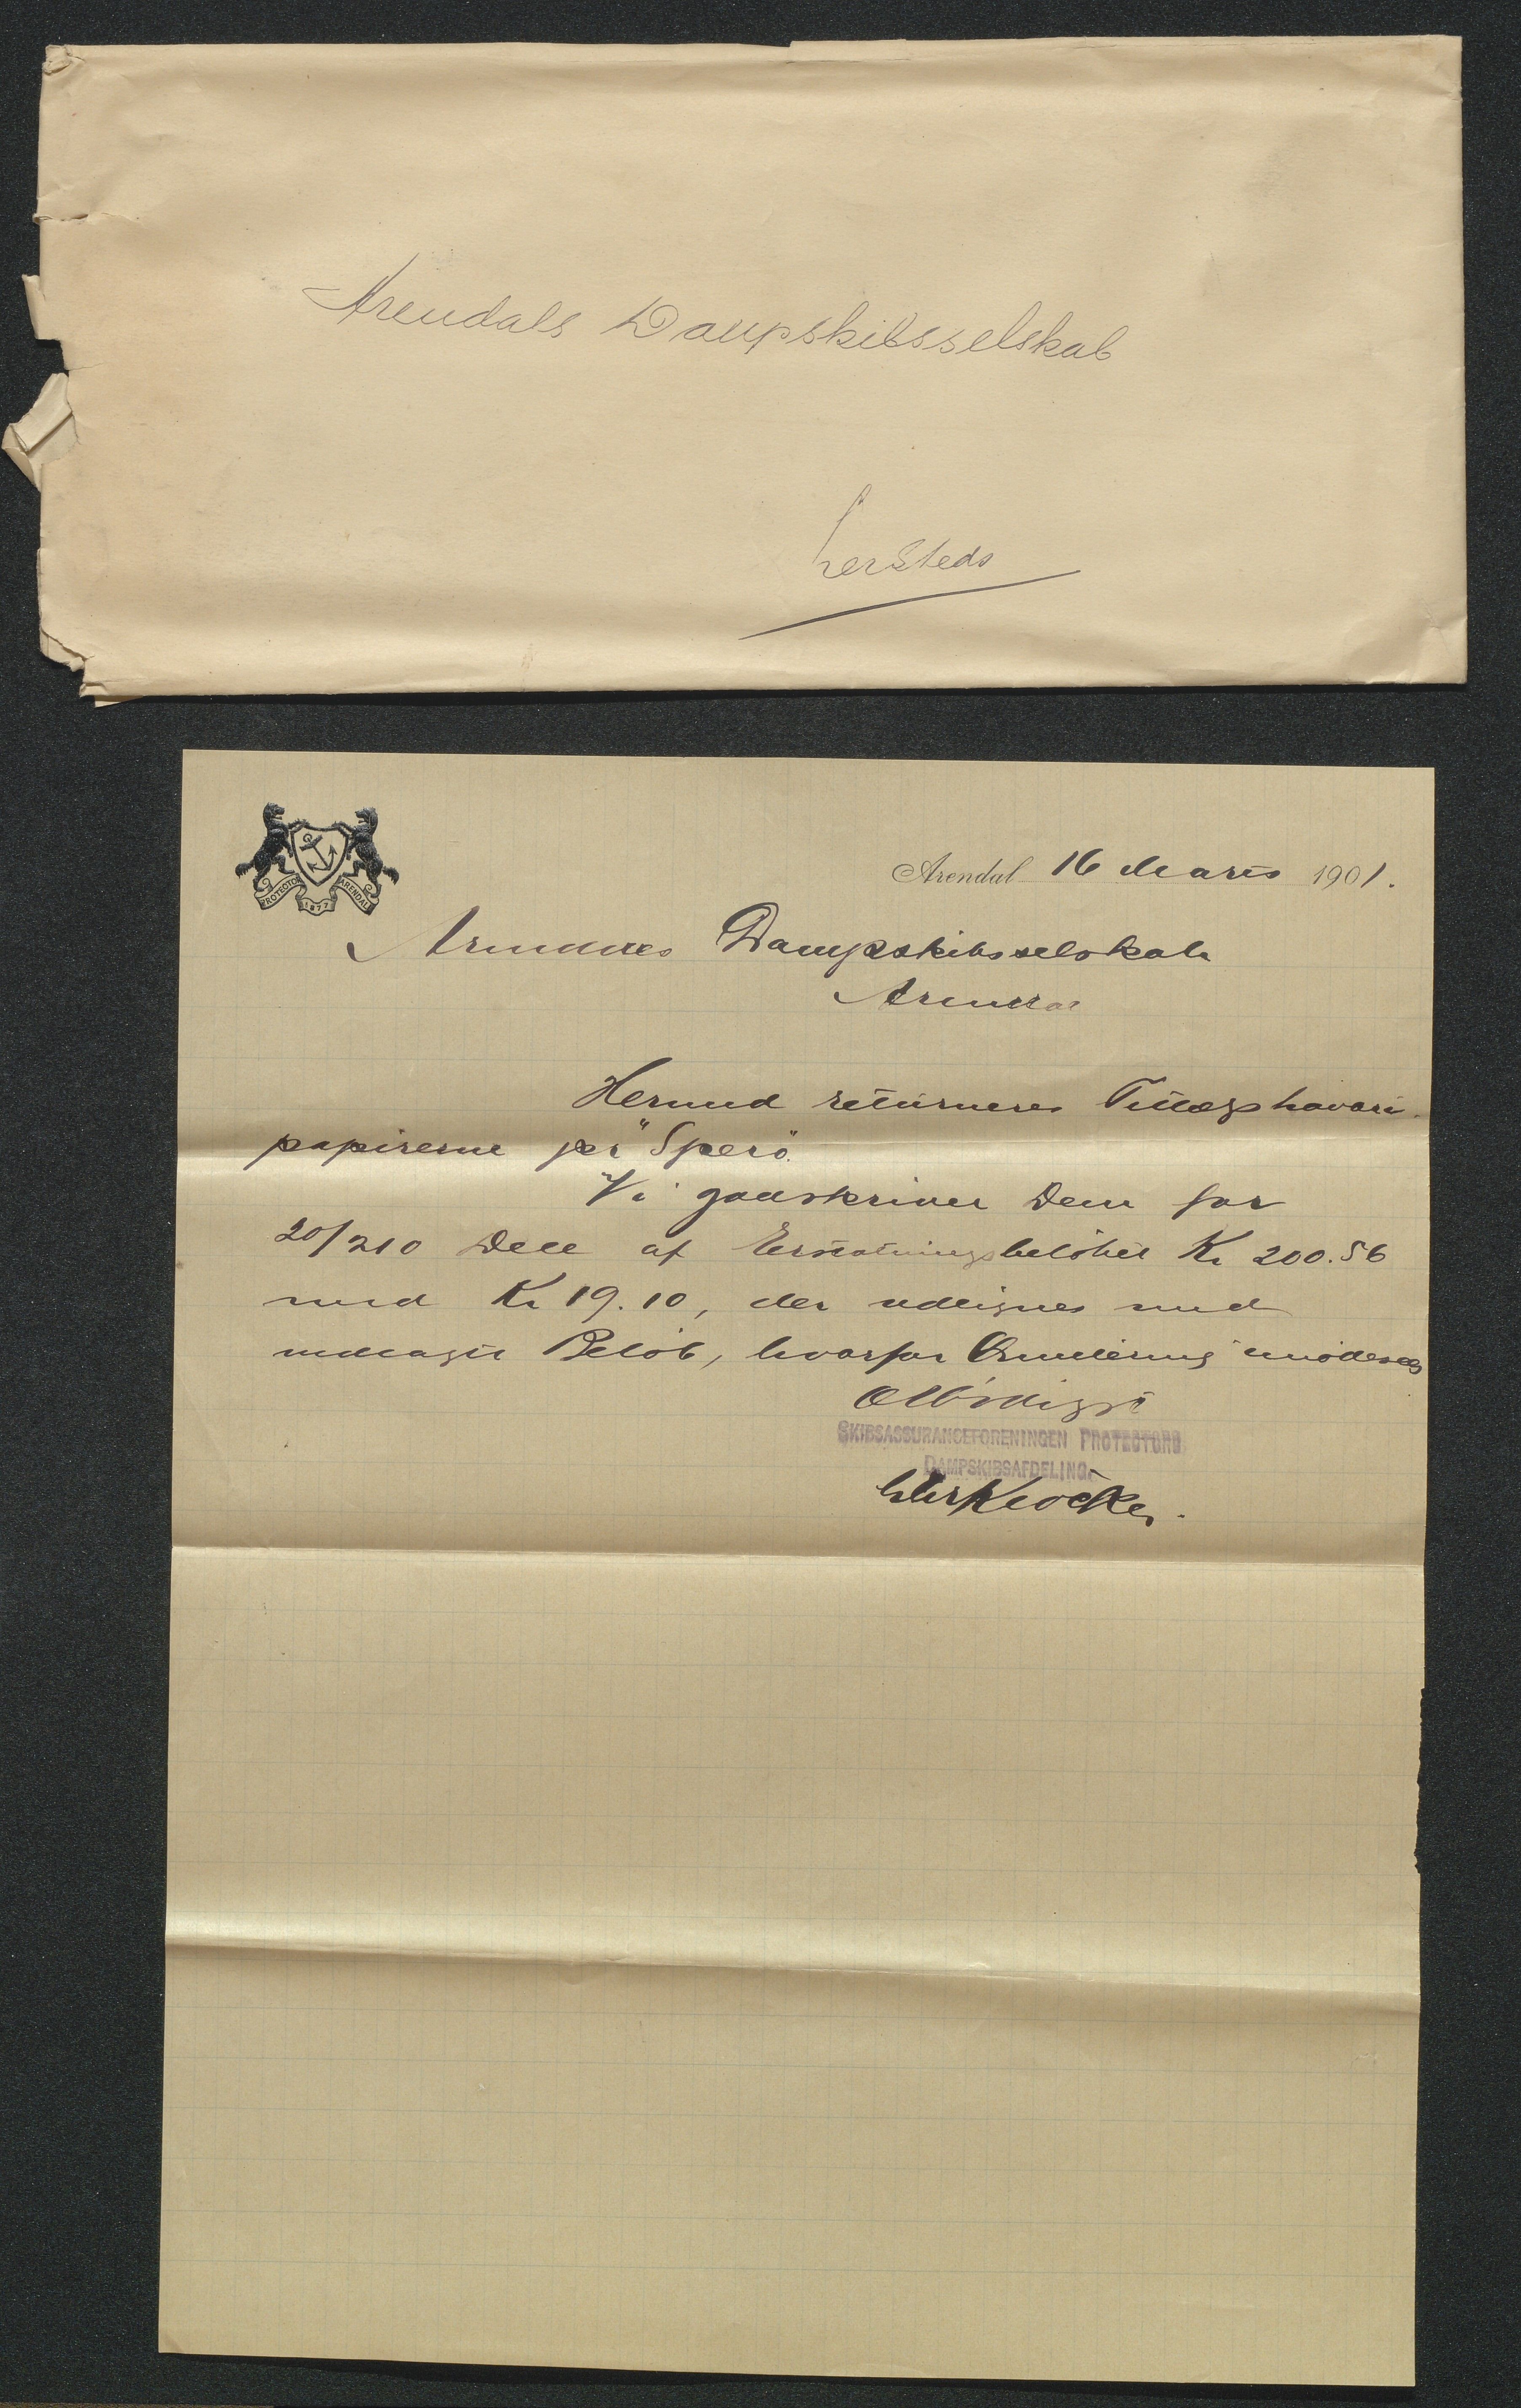 Arendals Dampskibsselskab
hersteds
PROTECTOR ARENDAL
1877
Arendal 16 Marts 1901.
Arendals Dampskibsselskab
Arendal
Hermed returneres Tillægshavari-
papirerne per "Spero".
Vi godskriver Dem for
20/210 Dele af Erstatningsbeløbet Kr 200.56
med Kr 19.10, der udlignes med
indlagte Beløb, hvorfor Kvittering imødesees
Ærbødigst
SKIBSASSURANCEFORENINGEN PROTECTORS
DAMPSKIBSAFDELING.